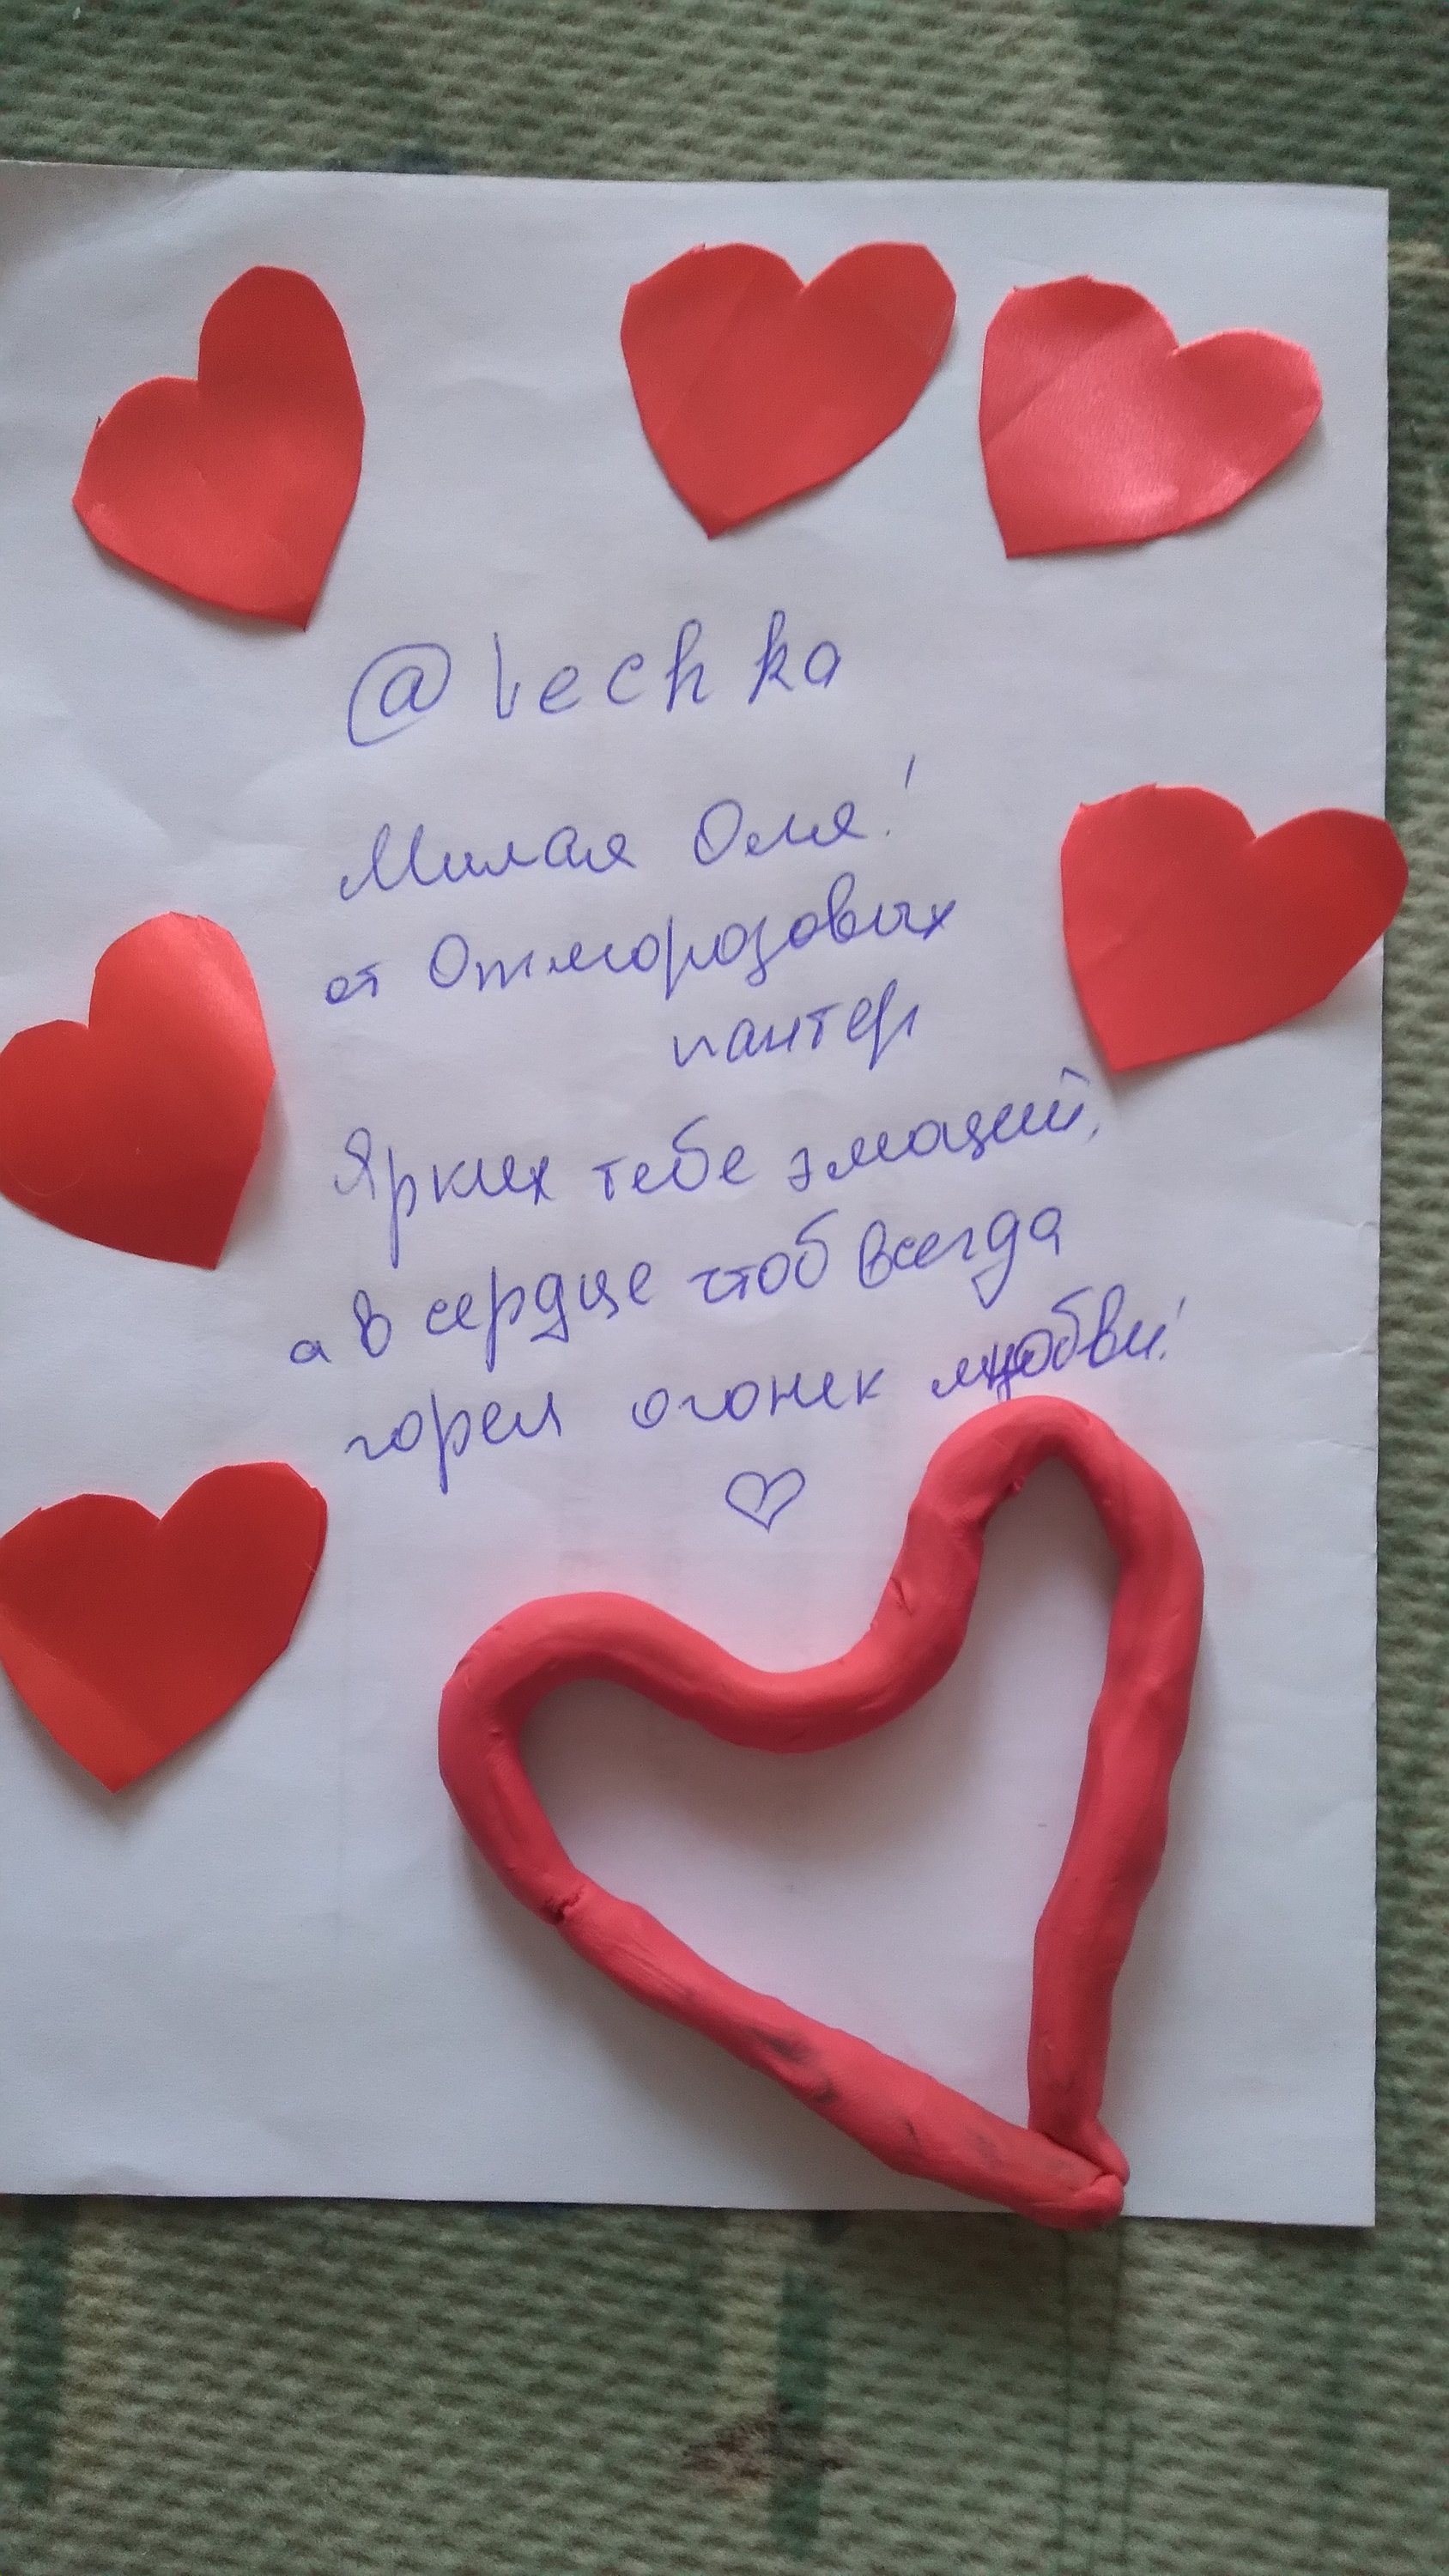 @lechka
Милая Оля!
от Отморозовых
пантер
Ярких тебе эмоций,
а в сердце чтоб всегда
горел огонек любви!